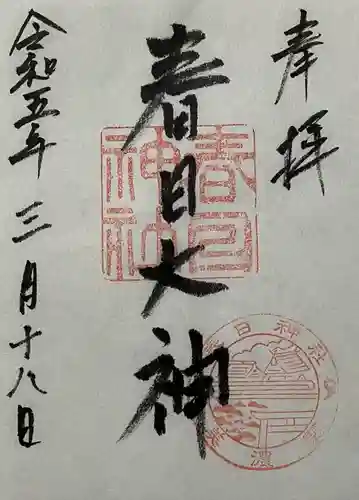 奉拝
春日大神
令和五年三月十八日
春日
神社